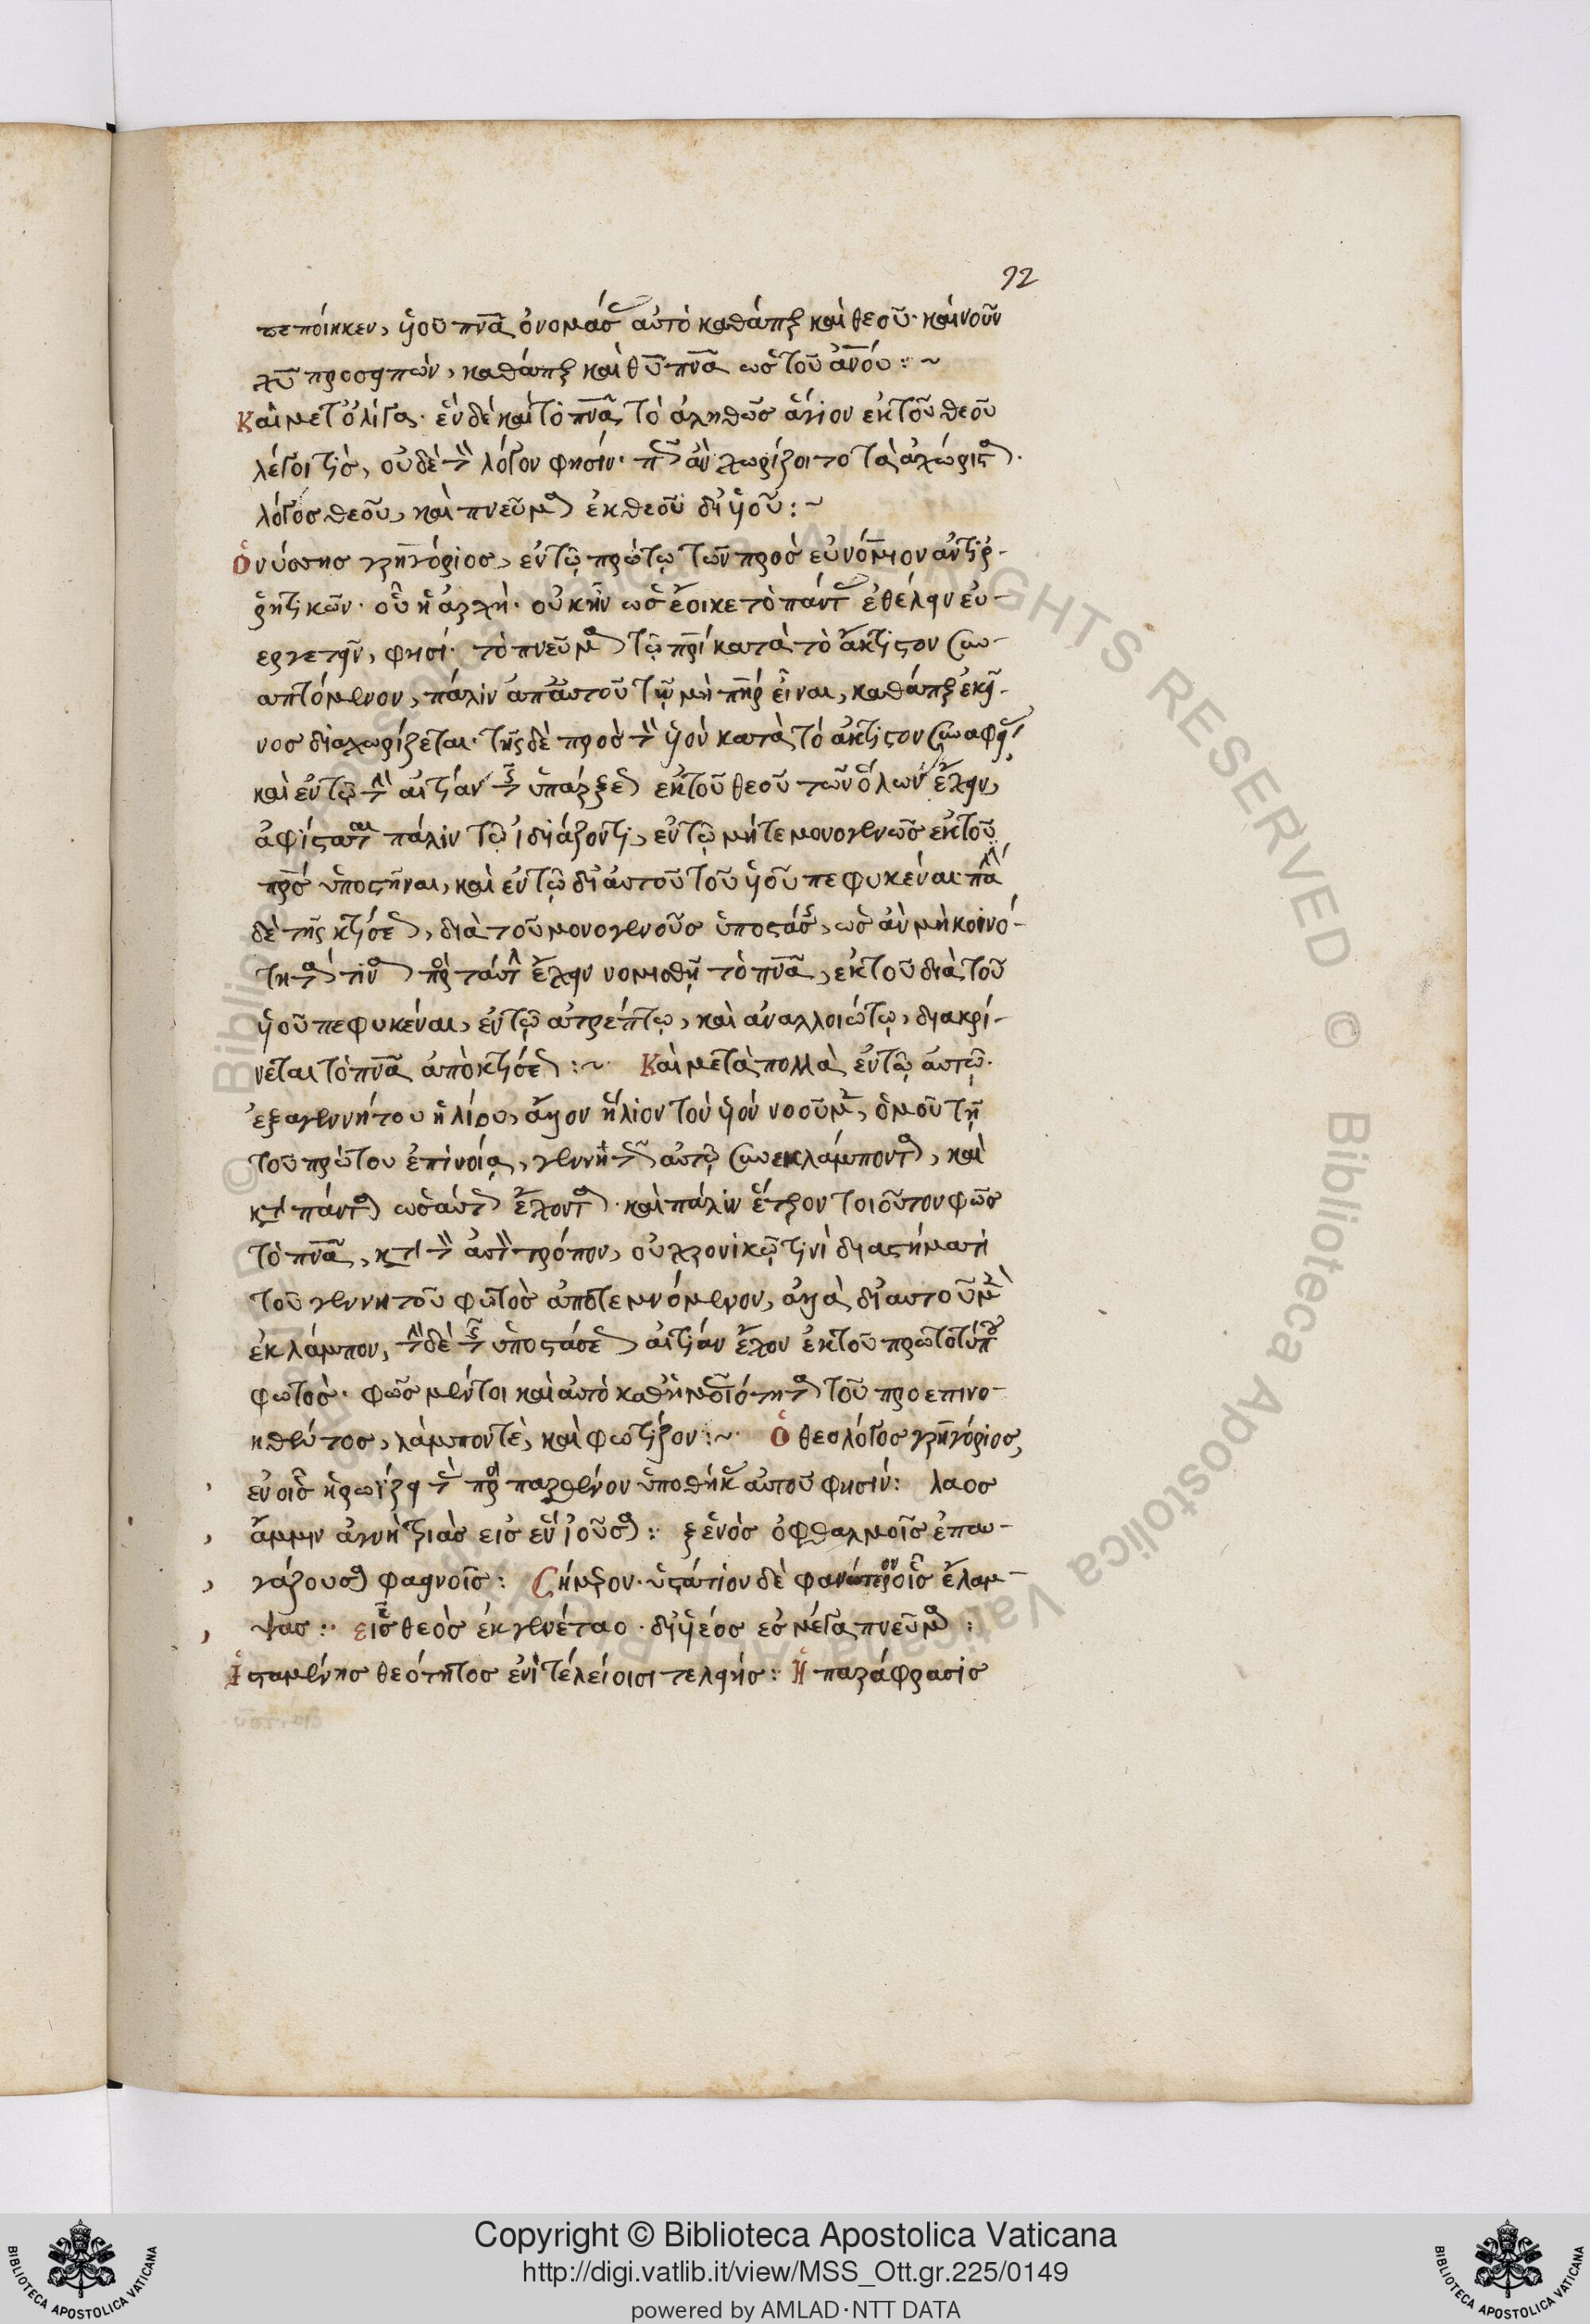 92
πεποίηκεν, υἱοῦ πνα ὀνομάσ αὐτὸ καθάπερ καὶ θεοῦ· καὶ νοῦν
χυ προσειπὼν, καθάπερ καὶ θυ πνα ὡς τοῦ ανου:~
Καὶ μετ ὀλίγα· ἓν δὲ καὶ τὸ πνα τὸ ἀληθῶς ἅγιον ἐκ τοῦ θεοῦ
λέγοι τίς, οὐδὲ τὸν λόγον φησίν· πῶς ἂν χωρίζοιτο τὰ ἀχώριστα·
λόγος θεοῦ, καὶ πνεῦμα ἐκ θεοῦ δι υἱοῦ:~
Ὁ νύσσης γρηγόριος, ἐν τῷ πρώτῳ τῶν πρὸς εὐνόμιον ἀντιρ-
ρητικῶν· οὗ ἡ ἀρχή· οὐκ ἦν ὡς ἔοικε τὸ πάντας ἐθέλειν εὐ-
εργετεῖν, φησί· τὸ πνεῦμα τῷ πρι κατὰ τὸ ἄκτιστον συν-
απτόμενον, πάλιν ἀπ αὐτοῦ τῷ μὴ πηρ εἶναι, καθάπερ ἐκεῖ-
νος διαχωρίζεται· τῆς δὲ πρὸς τὸν υἱὸν κατὰ τὸ ἄκτιστον συναφείας
καὶ ἐν τῷ τὴν αἰτίαν τῆς ὑπάρξεως ἐκ τοῦ θεοῦ τῶν ὅλων ἔχειν,
ἀφίσταται πάλιν τῷ ἰδιάζοντι, ἐν τῷ μήτε μονογενῶς ἐκ τοῦ
πρσ ὑποστῆναι, καὶ ἐν τῷ δι αὐτοῦ τοῦ υἱοῦ πεφυκέναι· πάλιν
δὲ τῆς κτίσεως, διὰ τοῦ μονογενοῦς ὑποστάσης, ὡς ἂν μὴ κοινό-
τητά τινα πρὸς ταύτην ἔχειν νομισθῇ τὸ πνα, ἐκ τοῦ διὰ τοῦ
υἱοῦ πεφυκέναι, ἐν τῷ ἀτρέπτῳ, καὶ ἀναλλοιώτῳ, διακρί-
νεται τὸ πνα ἀπὸ κτίσεως:~ Καὶ μετὰ πολλὰ ἐν τῷ αὐτῷ·
ἐξ ἀγεννήτου ἡλίου, ἄλλον ἥλιον τὸν υἱὸν νοοῦμεν, ὁμοῦ τῇ
τοῦ πρώτου ἐπινοίᾳ, γεννητῶς αὐτῷ συνεκλάμποντα, καὶ
κατὰ πάντα ὡσαύτως ἔχοντα· καὶ πάλιν ἕτερον τοιοῦτον φῶς
τὸ πνα, κατὰ τὸν αὐτὸν τρόπον, οὐ χρονικῷ τινὶ διαστήματι
τοῦ γεννητοῦ φωτὸς ἀποτεμνόμενον, ἀλλὰ δι αὐτοῦ μὲν
ἐκλάμπον, τὴν δὲ τῆς ὑποστάσεως αἰτίαν ἔχον ἐκ τοῦ πρωτοτύπου
φωτός· φῶς μέντοι καὶ αὐτὸ καθ ὁμοιότητα τοῦ προεπινο-
ηθέντος, λάμπον τὲ, καὶ φωτίζον:~ Ὁ θεολόγος γρηγόριος,
ἐν οἷς ἡρωΐζει τὰς πρὸς παρθένον ὑποθήκας αὐτοῦ φησίν: λαος
ἄμμιν ἁγνὴ τριὰς εἰς ἓν ἰοῦσα: ξενὸς ὀφθαλμοῖς ἐπαυ-
γάζουσα φαεινοῖς: Σήμερον· ὑστάτιον δὲ φανώτερον οἷς ἔλαμ-
ψας: εἷς θεὸς ἐκ γενέταο· δι υἱέος ἐς μέγα πνεῦμα:
Ἱσταμένης θεότητος ἐνὶ τελείοισι τελείης: Ἡ παράφρασις
Copyright © Biblioteca Apostolica Vaticana
http://digi.vatlib.it/view/MSS_Ott.gr.225/0149
powered by AMLAD·NTT DATA